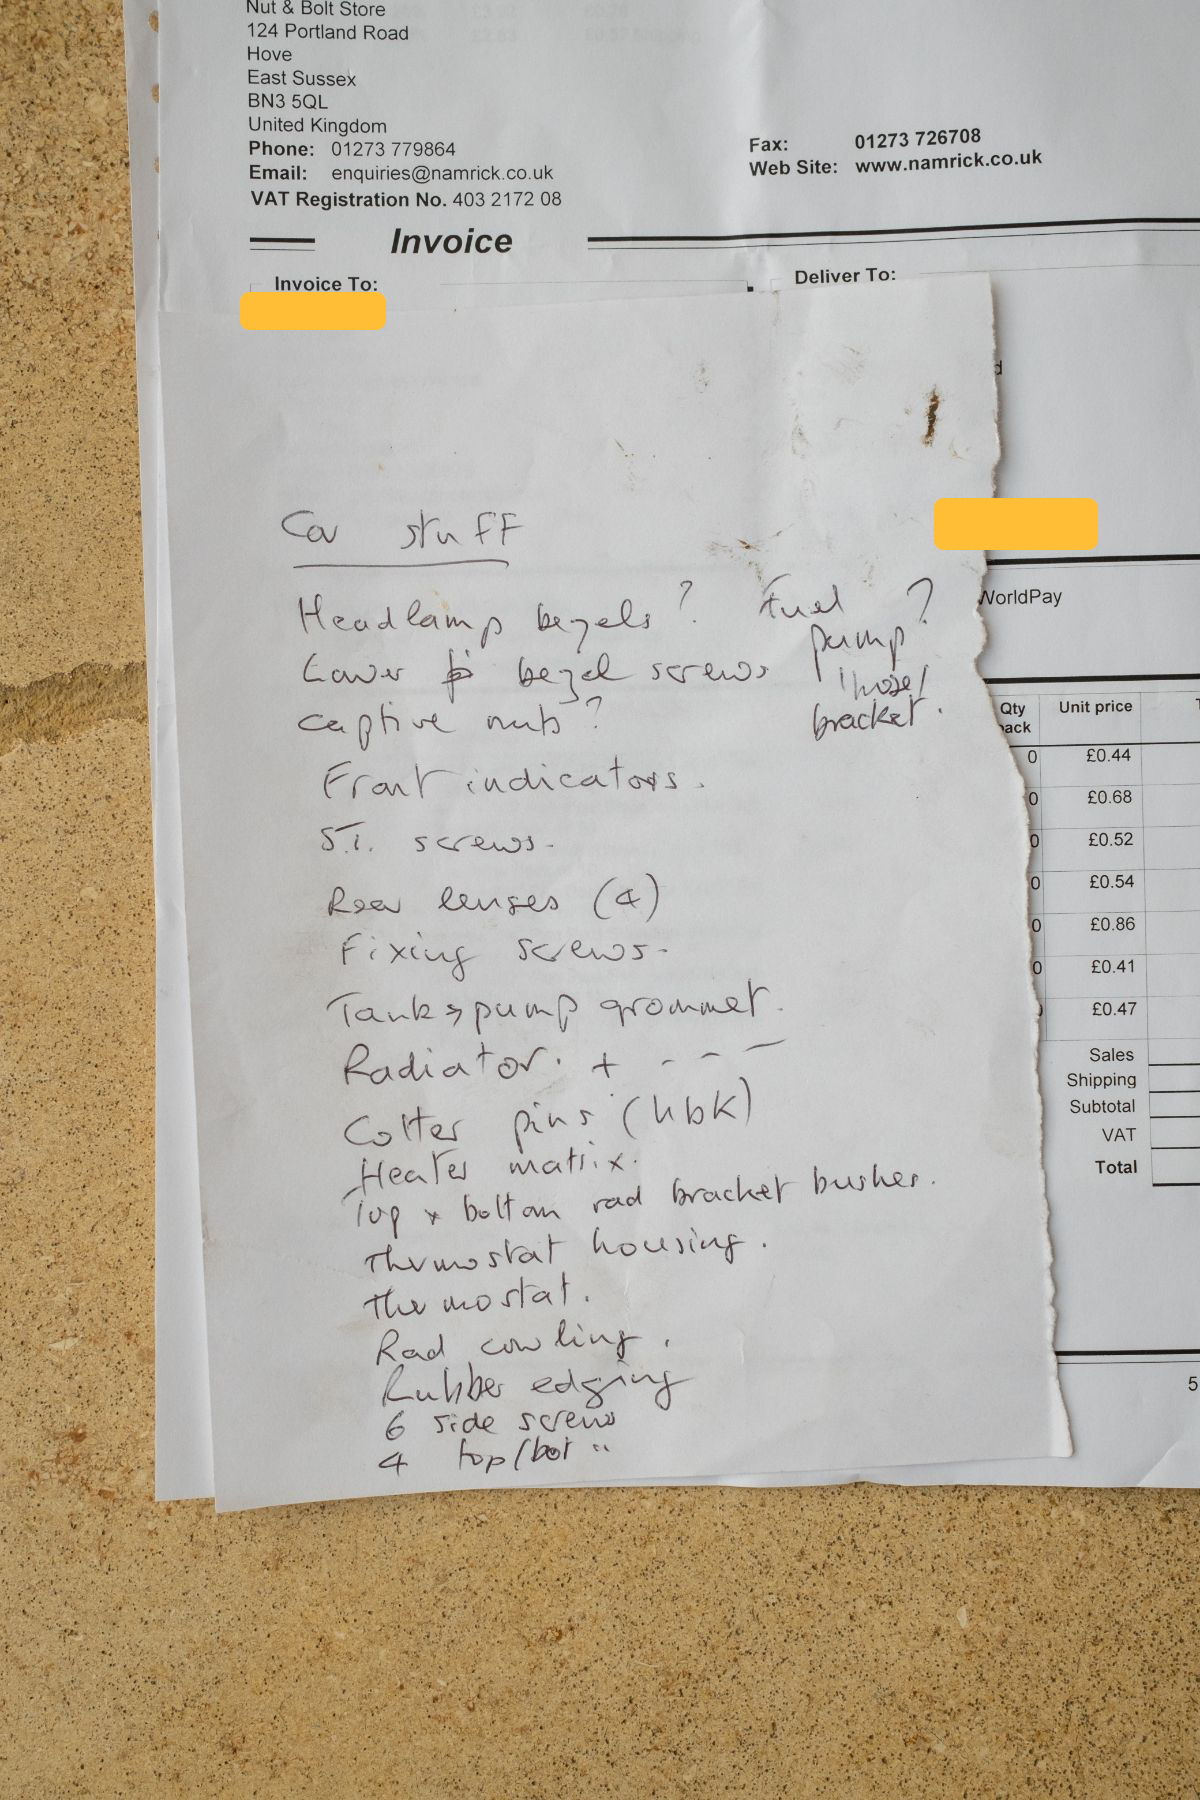 Nut & Bolt Store
124 Portland Road
Hove
East Sussex
BN3 5QL
United Kingdom
Phone: 01273 779864
Email: enquiries@namrick.co.uk
VAT Registration No. 403 2172 08
Fax: 01273 726708
Web Site: www.namrick.co.uk
Invoice
Invoice To:
Deliver To:
d
WorldPay
Qty
ack
Unit price
0 £0.44
0 £0.68
0 £0.52
0 £0.54
0 £0.86
0 £0.41
£0.47
Sales
Shipping
Subtotal
VAT
Total
5
Car stuff
Headlamp bezels?
Lower bezel screws
captive nuts?
Fuel ?
pump
hose/
bracket.
Front indicators.
S.T. screws.
Rear lenses (4)
Fixing screws.
Tank → pump grommet.
Radiator. + - - -
Cotter pins (hbk)
Heater matrix.
Top + bottom rad bracket bushes.
Thermostat housing.
Thermostat.
Rad cowling.
Rubber edging
6 side screws
4 top/bot "